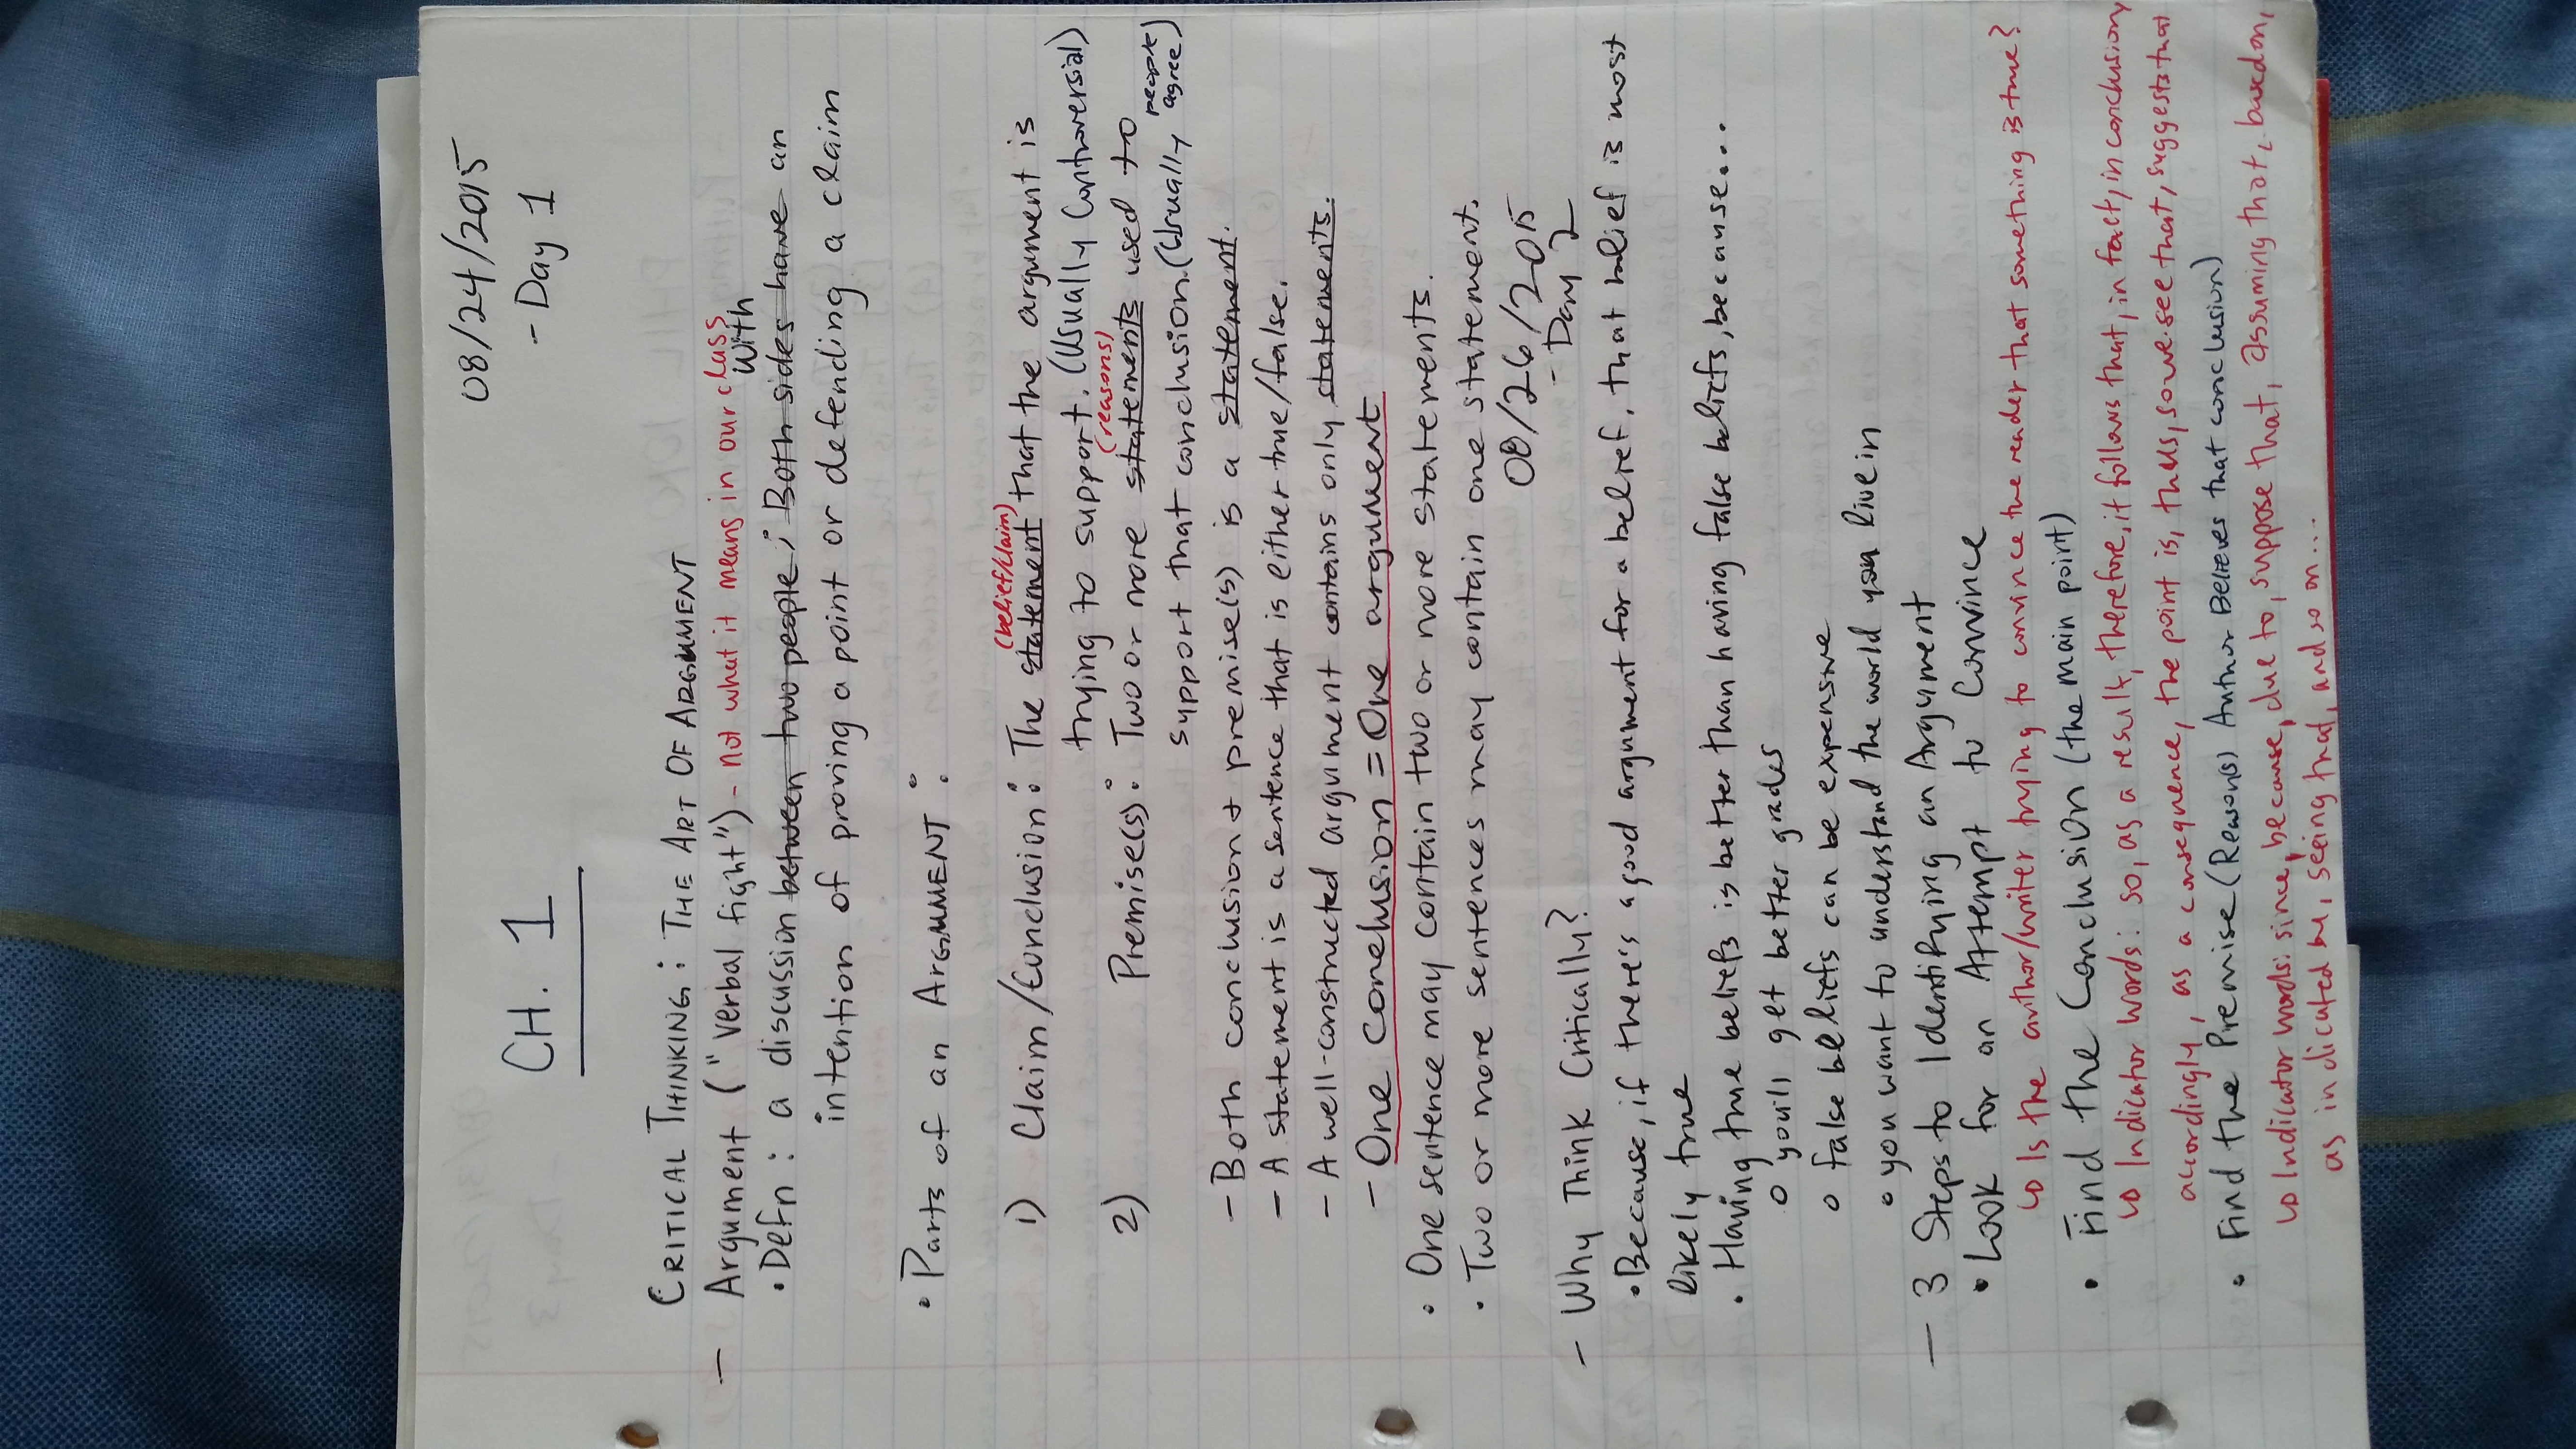 08/24/2015
- Day 1
CH. 1
CRITICAL THINKING: THE ART OF ARGUMENT
— Argument ("verbal fight") - not what it means in our class
with
• Defn: a discussion between two people; Both sides have an
intention of proving a point or defending a claim
• Parts of an ARGUMENT:
(belief/claim)
1) Claim/Conclusion: The statement that the argument is
trying to support. (Usually Controversial)
(reasons)
2) Premise(s): Two or more statements used to
support that conclusion. (Usually people agree)
- Both conclusion + premise(s) is a statement.
- A statement is a sentence that is either true/false.
- A well-constructed argument contains only statements.
- One conclusion = One argument
• One sentence may contain two or more statements.
• Two or more sentences may contain one statement.
08/26/2015
- Day 2
— Why Think Critically?
• Because, if there's a good argument for a belief, that belief is most
likely true
• Having true beliefs is better than having false beliefs, because...
o you'll get better grades
o false beliefs can be expensive
• you want to understand the world you live in
— 3 Steps to Identifying an Argument
• Look for an Attempt to Convince
↳ Is the author/writer trying to convince the reader that something is true?
• Find the Conclusion (the main point)
↳ Indicator words: so, as a result, therefore, it follows that, in fact, in conclusion,
accordingly, as a consequence, the point is, thus, so we see that, suggests that
• Find the Premise (Reason(s) Author Believes that conclusion)
↳ Indicator words: since, because, due to, suppose that, assuming that, based on,
as indicated by, seeing that, and so on...